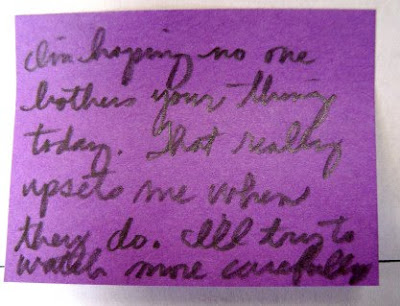 I'm hoping no one
bothers your things
today. That really
upsets me when
they do. I'll try to
watch more carefully